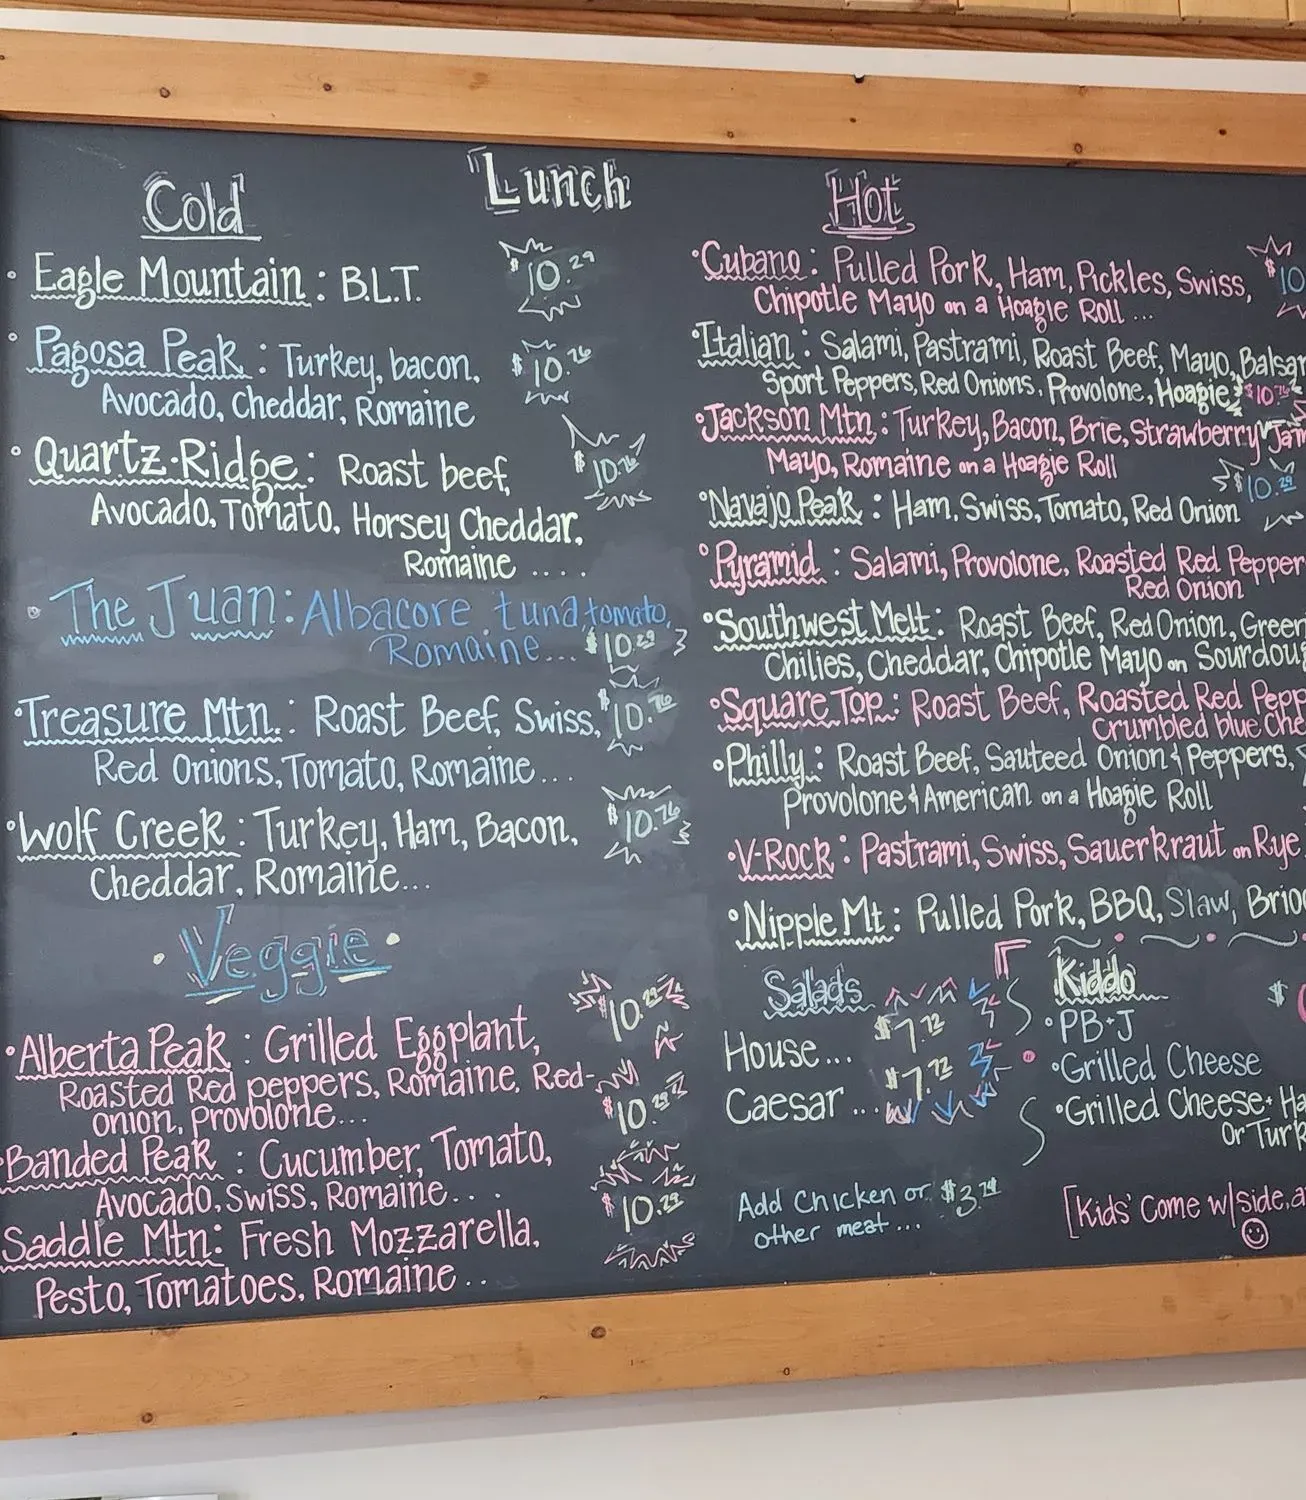 Lunch
Cold
Eagle Mountain: B.L.T. $10.29
Pagosa Peak: Turkey, bacon, $10.76
Avocado, Cheddar, Romaine
Quartz-Ridge: Roast beef, $10.76
Avocado, Tomato, Horsey Cheddar,
Romaine ....
The Juan: Albacore tuna, tomato,
Romaine... $10.29
Treasure Mtn.: Roast Beef, Swiss, $10.76
Red Onions, Tomato, Romaine...
Wolf Creek: Turkey, Ham, Bacon, $10.76
Cheddar, Romaine...
Veggie
Alberta Peak: Grilled Eggplant, $10.29
Roasted Red peppers, Romaine, Red-
onion, provolone...
$10.29
Banded Peak: Cucumber, Tomato,
Avocado, Swiss, Romaine...
$10.29
Saddle Mtn: Fresh Mozzarella,
Pesto, Tomatoes, Romaine..
Hot
Cubano: Pulled Pork, Ham, Pickles, Swiss, $10
Chipotle Mayo on a Hoagie Roll ...
Italian: Salami, Pastrami, Roast Beef, Mayo, Balsa
Sport Peppers, Red Onions, Provolone, Hoagie $10.76
Jackson Mtn: Turkey, Bacon, Brie, Strawberry Jam
Mayo, Romaine on a Hoagie Roll
Navajo Peak: Ham, Swiss, Tomato, Red Onion $10.29
Pyramid: Salami, Provolone, Roasted Red Pepper
Red Onion
Southwest Melt: Roast Beef, Red Onion, Green
Chilies, Cheddar, Chipotle Mayo on Sourdou
Square Top: Roast Beef, Roasted Red Pepp
Crumbled blue Che
Philly: Roast Beef, Sauteed Onion & Peppers,
Provolone & American on a Hoagie Roll
V-Rock: Pastrami, Swiss, Sauerkraut on Rye
Nipple Mt: Pulled Pork, BBQ, Slaw, Brio
Salads
House... $7.72
Caesar ... $7.72
Add Chicken or $3.74
other meat...
Kiddo $
PB+J
Grilled Cheese
Grilled Cheese + Ha
Or Turk
[Kids' Come w/side, a